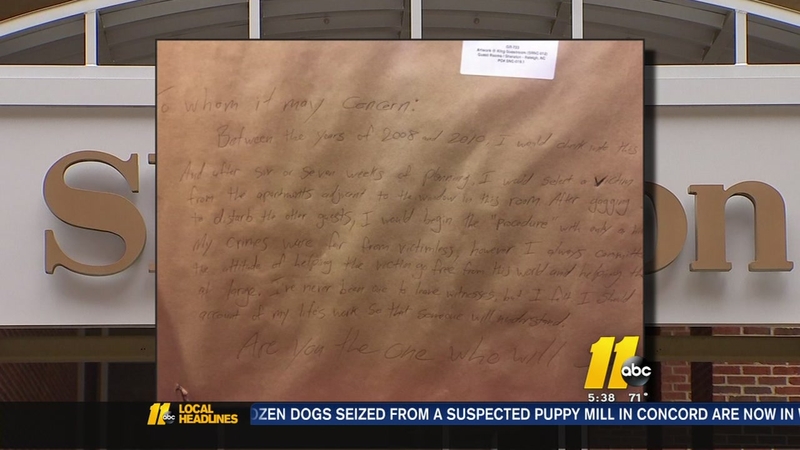 To whom it may concern:
Between the years of 2008 and 2010, I would check into this
And after six or seven weeks of planning, I would select a victim
from the apartments adjacent to the window in this room. After gagging
to disturb the other guests, I would begin the "procedure" with only a
My crimes were far from victimless, however I always
the attitude of helping the victim go free from this world and helping
at large. I've never been one to leave witnesses, but I felt I should
account of my life's work so that someone will understand.
Are you the one who will
S on
11 abc
5:38 71°
11 abc LOCAL HEADLINES OZEN DOGS SEIZED FROM A SUSPECTED PUPPY MILL IN CONCORD ARE NOW IN W